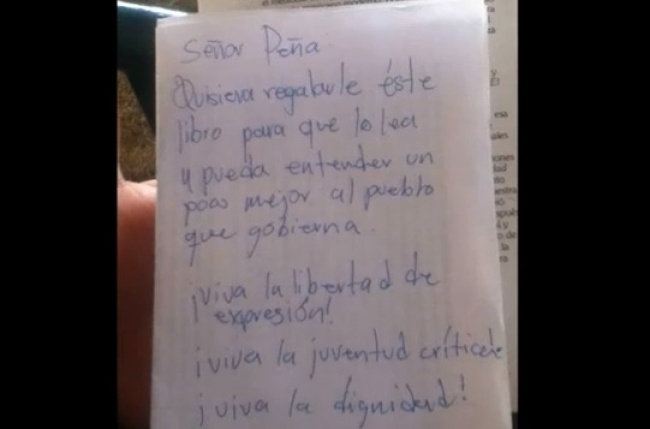 Señor Peña
Quisiera regalarle éste
libro para que lo lea
y pueda entender un
poco mejor al pueblo
que gobierna.
¡viva la libertad de
expresión!
¡viva la juventud crítica
¡viva la dignidad!
esa